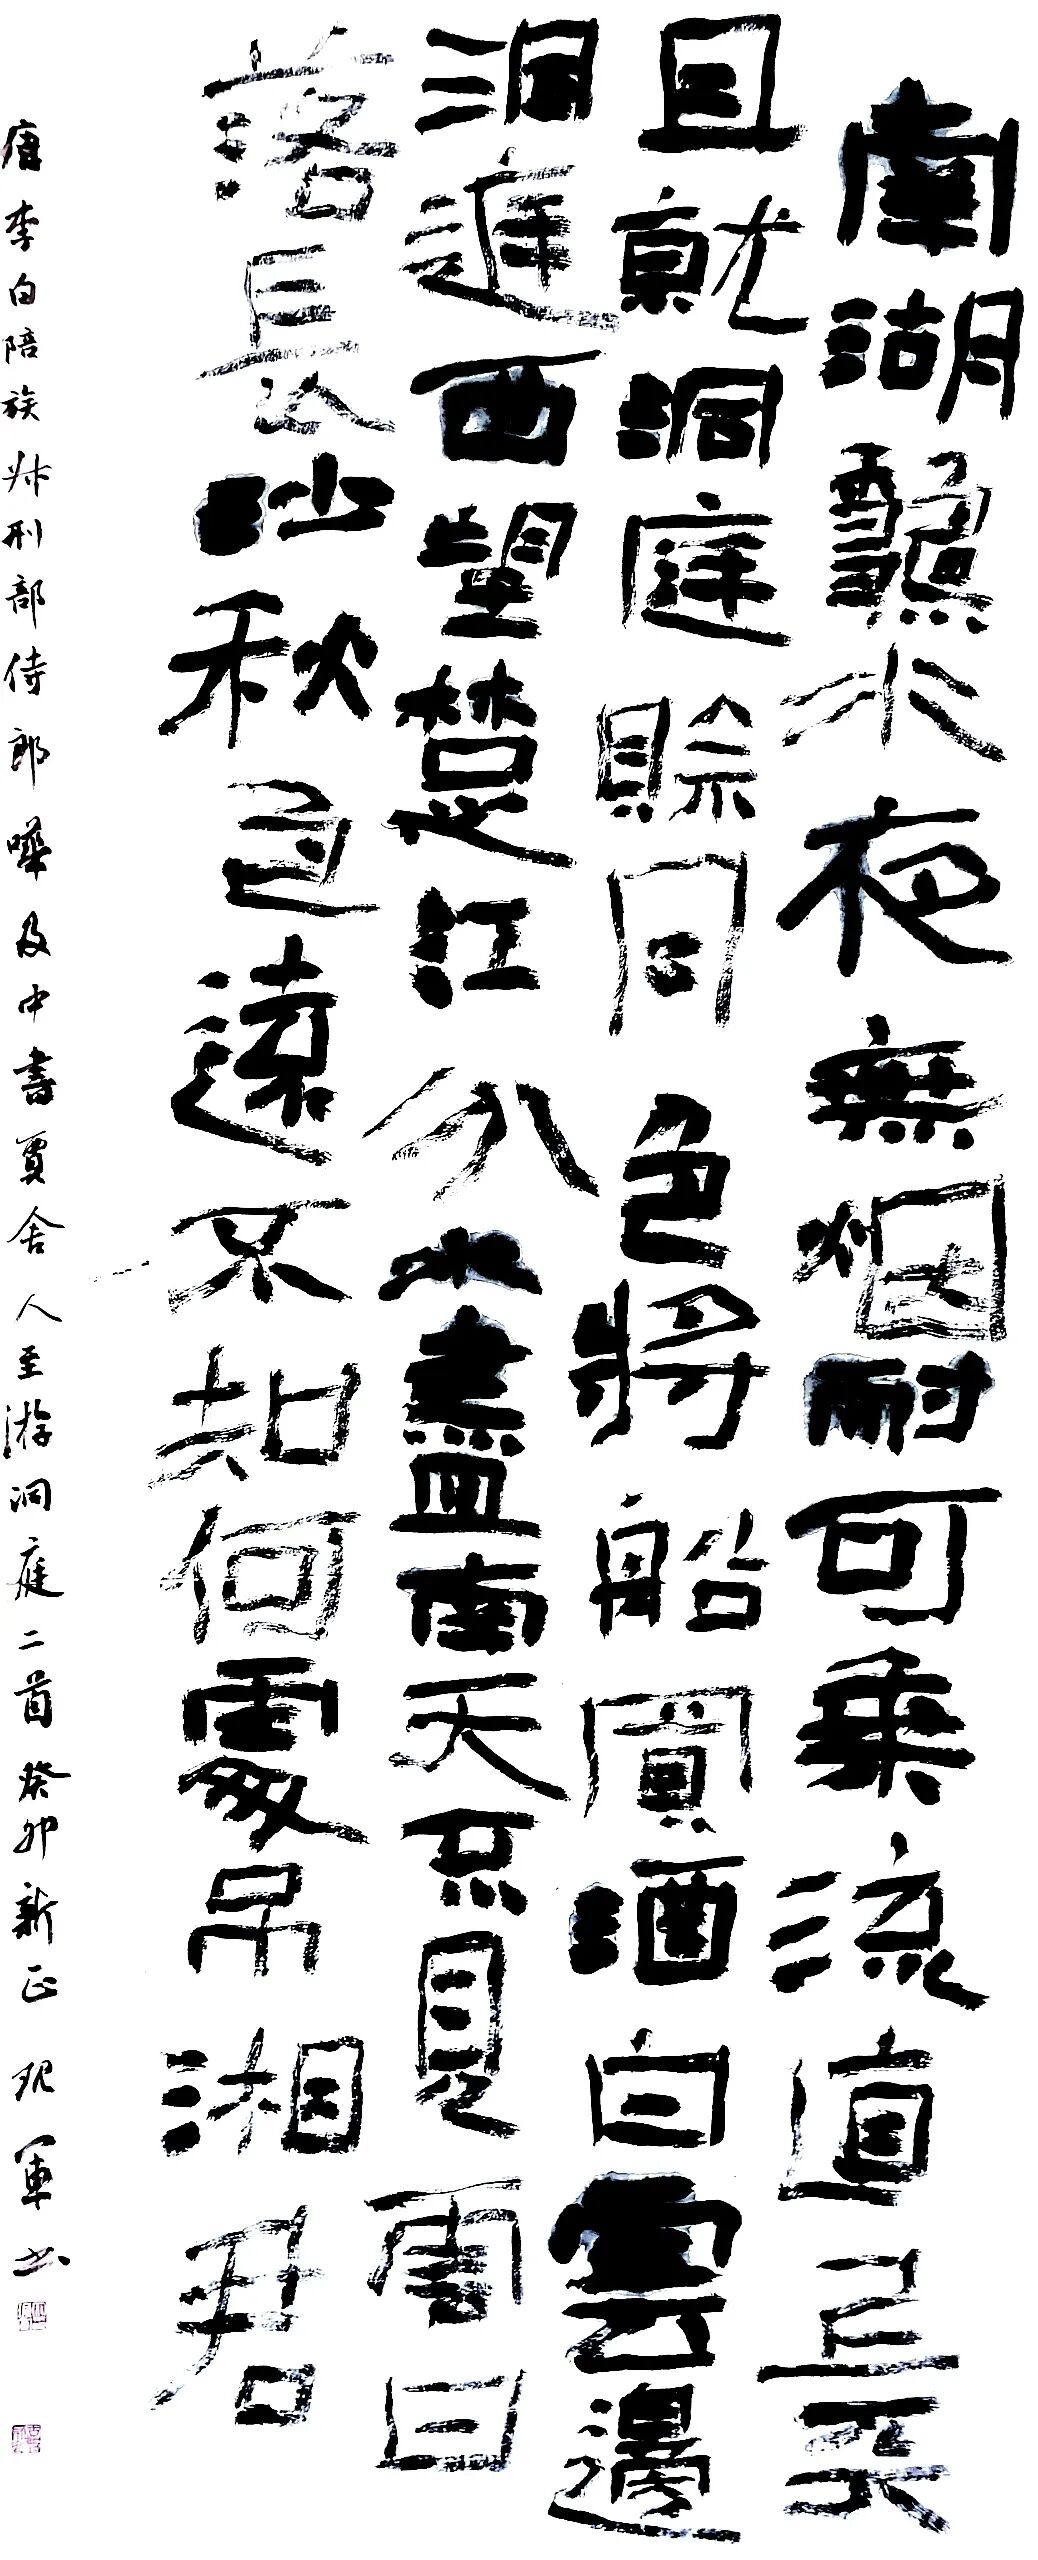 南湖龝水夜無烟耐可乘流直上天
且就洞庭賒月色將船買酒白雲邊
洞庭西望楚江分水盡南天不見雲日
落長沙秋色遠不知何處吊湘君
唐李白陪族叔刑部侍郎曄及中書賈舍人至游洞庭二首癸卯新正軍书